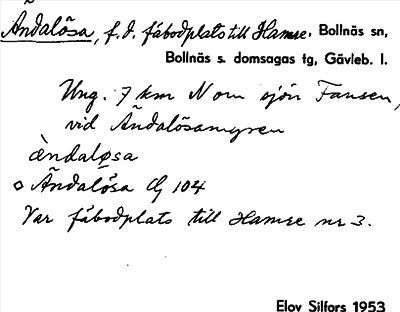 Ändalösa, f.d. fäbodplats till Hamre, Bollnäs sn,
Bollnäs s. domsagas tg, Gävleb. l.
Ung. 7 km N om sjön Fansen,
vid Ändalösamyren
àndaløsa
o Ändalösa Cg 104
Var fäbodplats till Hamre nr 3.
Elov Silfors 1953